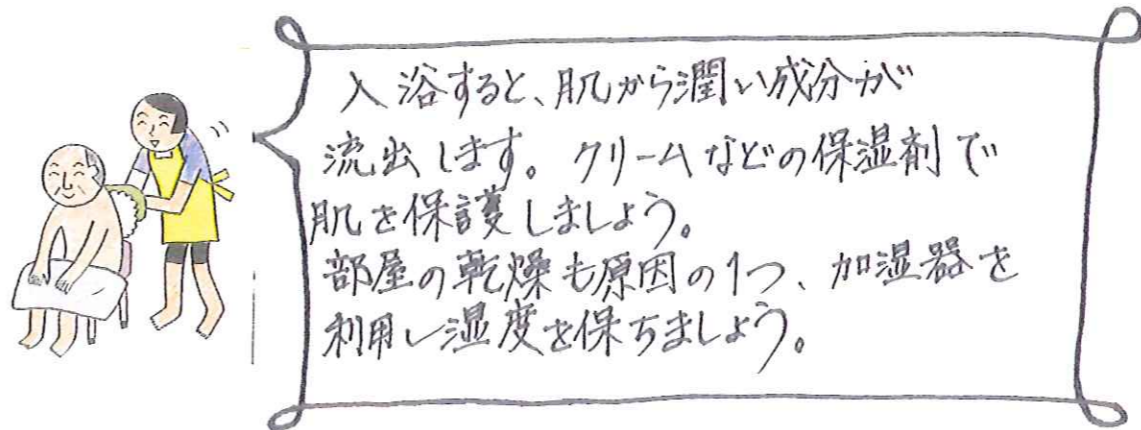 入浴すると、肌から潤い成分が
流出します。クリームなどの保湿剤で
肌を保護しましょう。
部屋の乾燥も原因の1つ、加湿器を
利用し湿度を保ちましょう。